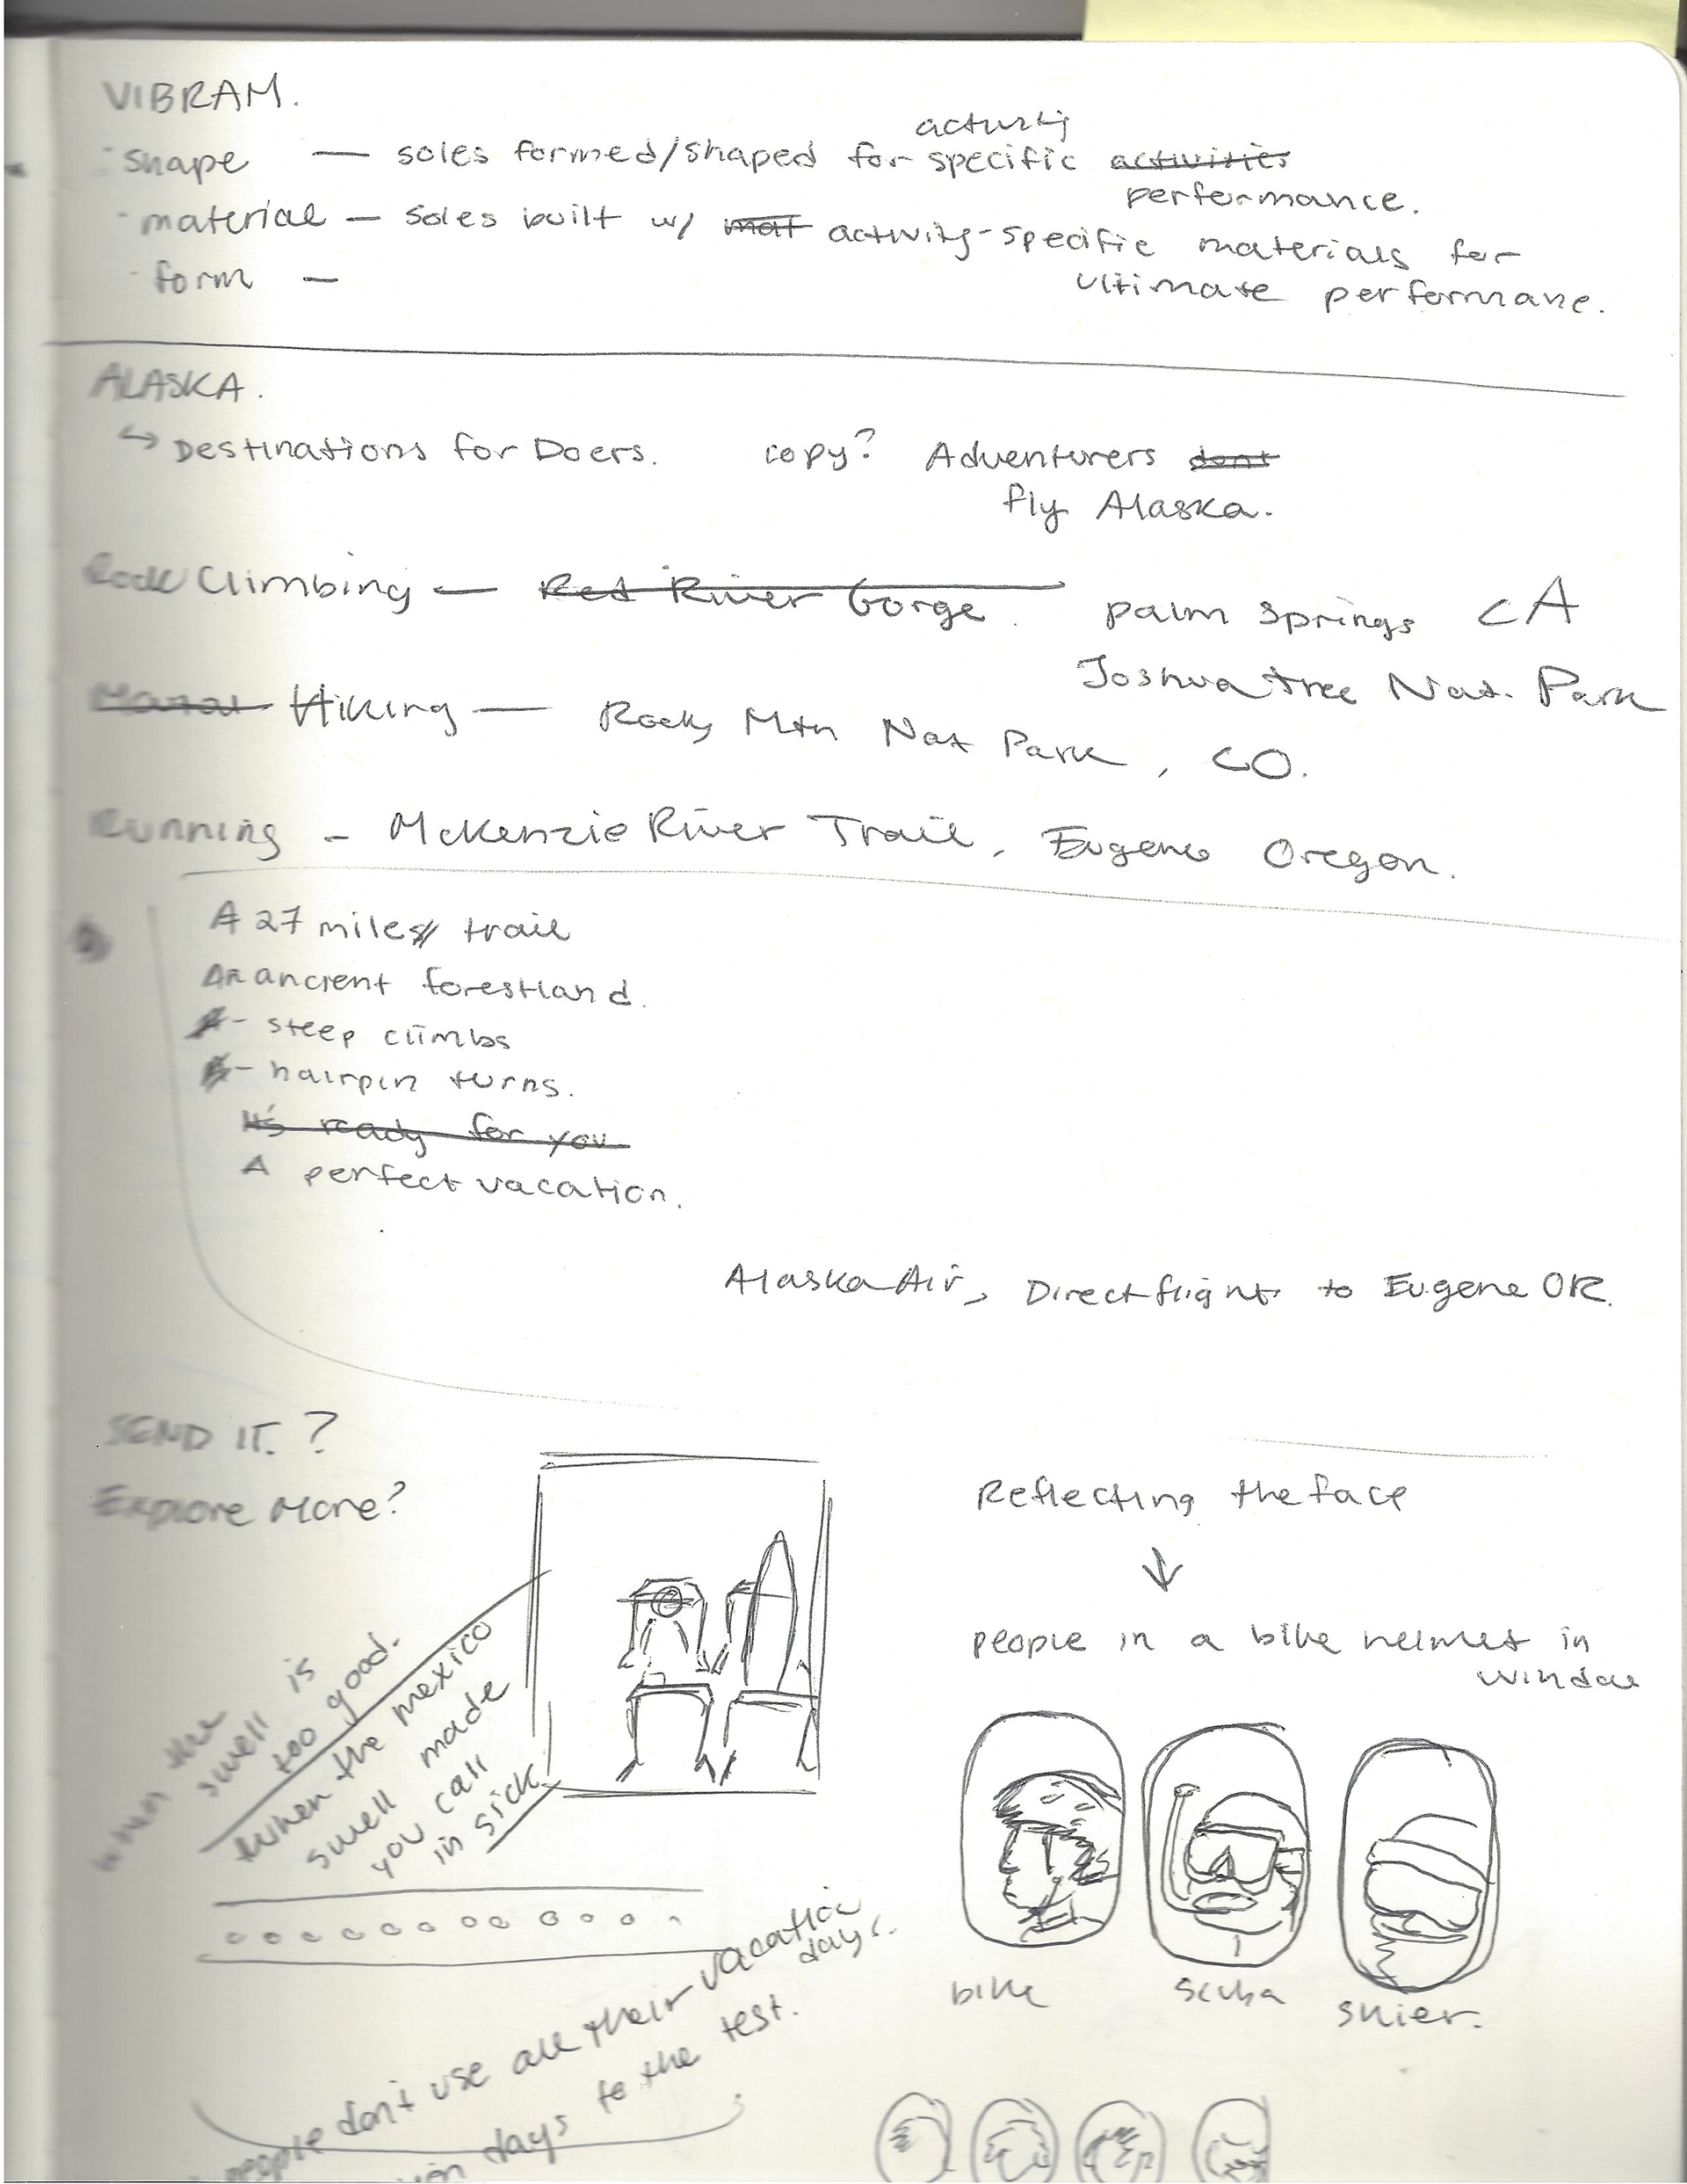 VIBRAM.
activity
- shape — soles formed/shaped for specific activities
performance.
- material — soles built w/ mat activity-specific materials for
ultimate performane.
- form —
ALASKA.
↳ Destinations for Doers. copy? Adventurers dont
fly Alaska.
Rock Climbing — Red River Gorge. palm springs CA
Joshua tree Nat. Park
Hiking — Rocky Mtn Nat Park, CO.
Running - McKenzie River Trail, Eugene Oregon.
A 27 mile trail
An ancient forestland.
- steep climbs
- hairpin turns.
It's ready for you
A perfect vacation.
Alaska Air, Direct flight to Eugene OR.
SEND IT. ?
Explore More?
Reflecting the face
↓
people in a bike helmet in
window
when the
swell is
too good.
When the mexico
swell made
you call
in sick.
bike
scuba
skier.
people don't use all their vacation
days.
days to the test.